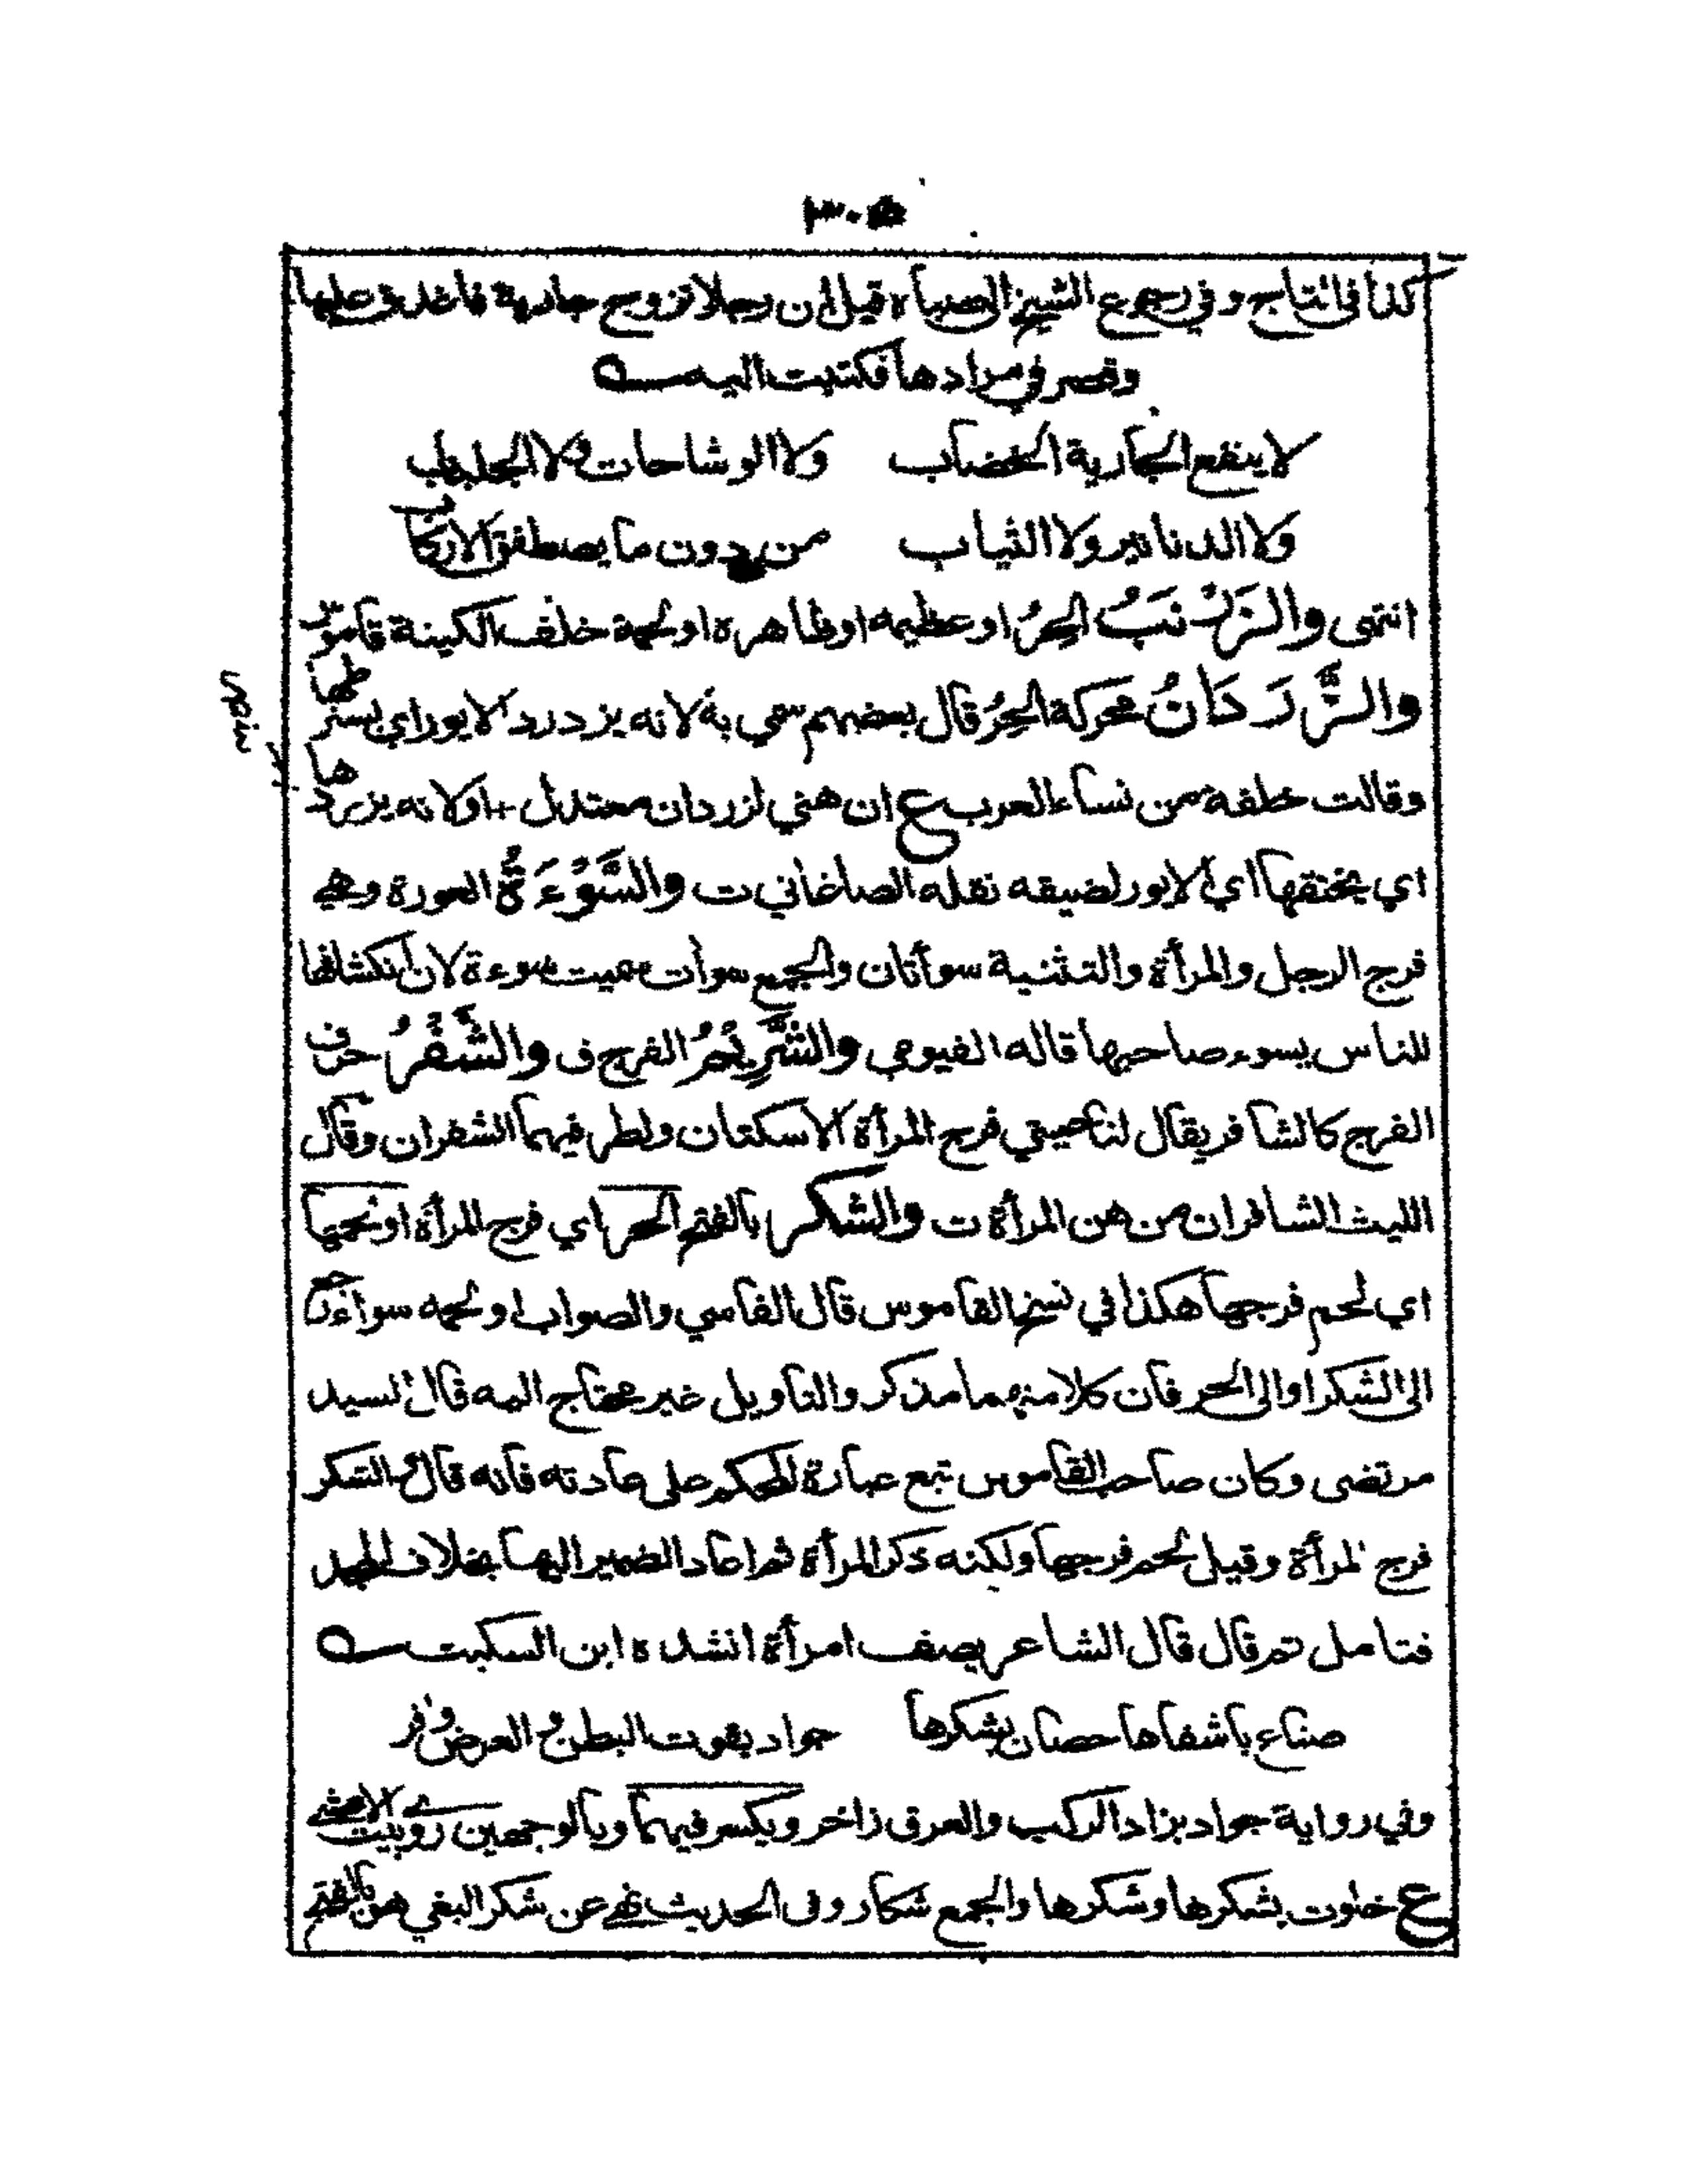 ٣٠٥
كذا فى التاج وفي رجوع الشيخ الى صباه قيل ان رجلا تزوج جارية فاغدق عليها
وقصر في مرادها فكتبت اليه
لا ينفع الجارية الخضاب ولا الوشاحات ولا الجلباب
ولا الدنانير ولا الثياب من دون ما يصطفق الاركاب
انتهى والزَرْنَبُ الحِرُ او عظيمه او ظاهره او لحمة خلف الكينة قاموس
والزَّرَدَانُ محركة الحِرُ قال بعضهم سمي به لانه يزدرد الايور اي يسترطها
وقالت خلفة من نساء العرب ع ان هني لزردان معتدل + او لانه يزردها
اي يخنقها اي الايور لضيقه نقله الصاغاني ت والسَّوْءَةُ العورة وهي
فرج الرجل والمرأة والتثنية سوأتان والجمع سوأت سميت سوءة لان انكشافها
للناس يسوء صاحبها قاله الفيومي والشَّرِيْحُ الفرج ف والشُّفْرُ حرف
الفرج كالشافر يقال لناحيتي فرج المرأة الاسكتان ولطرفيهما الشفران وقال
الليث الشافران من هن المرأة ت والشكر بالفتح الحر اي فرج المرأة او لحمها
اي لحم فرجها هكذا في نسخ القاموس قال الفاسي والصواب او لحمه سواء رجع
الى الشكر او الى الحر فان كلا منهما مذكر والتاويل غير محتاج اليه قال السيد
مرتضى وكان صاحب القاموس تبع عبارة المحكم على عادته فانه قال والشكر
فرج المرأة وقيل لحم فرجها ولكنه ذكر المرأة ثم اعاد الضمير اليها بخلاف المجد
فتامل ثم قال قال الشاعر يصف امرأة انشده ابن السكيت
صناع باشفاها حصان بشكرها جواد بقوت البطن والعرض وافر
وفي رواية جواد بزاد الركب والعرق زاخر ويكسر فيهما وبالوجهين روي بيت الاعشى
ع خلوت بشكرها وشكرها والجمع شكار وفى الحديث نهى عن شكر البغي هو بالفتح